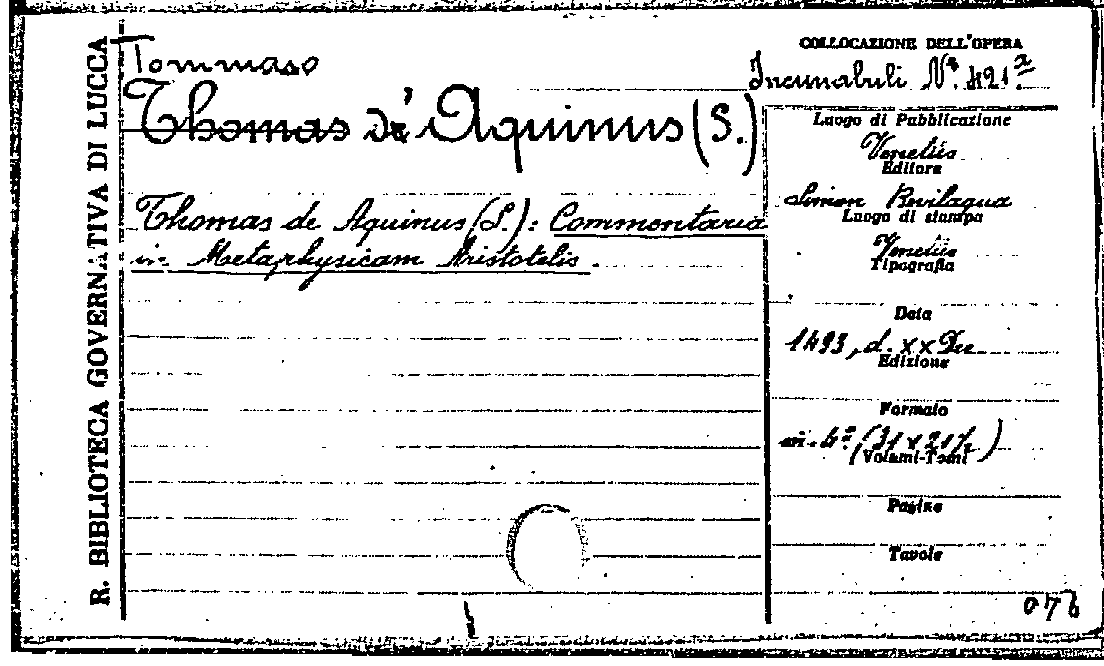 R. BIBLIOTECA GOVERNATIVA DI LUCCA
Tommaso
Thomas de' Aquinus (S.)
Thomas de Aquinus (S.): Commentaria
in Metaphysicam Aristotelis.
COLLOCAZIONE DELL'OPERA
Incunabuli N.° 421
Luogo di Pubblicazione
Venetiis
Editore
Simon Bevilaqua
Luogo di stampa
Venetiis
Tipografia
Data
1493, d. xx Dec
Edizione
Formato
in-4° (31 x 21½)
Volumi-Tomi
Pagine
Tavole
076